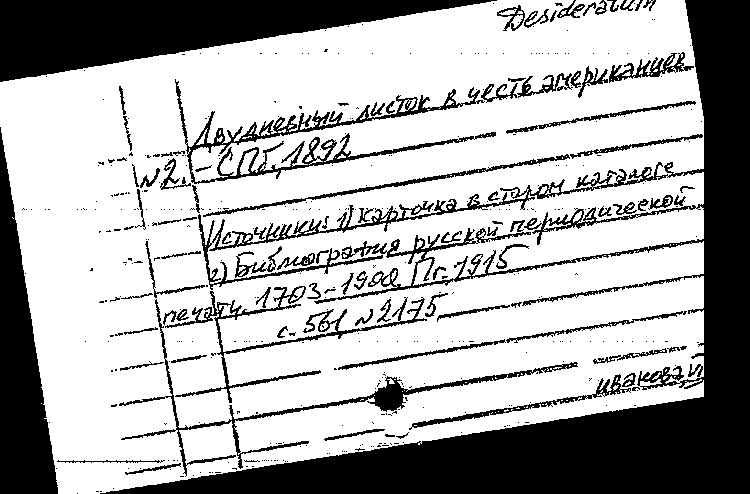 Desideratum
Двудневный листок в честь американцев
№2. - СПб, 1892
Источники: 1) Карточка в старом каталоге
2) Библиография русской периодической
печати. 1703-1900. Пг, 1915
с. 561, №2175
Иванова, И